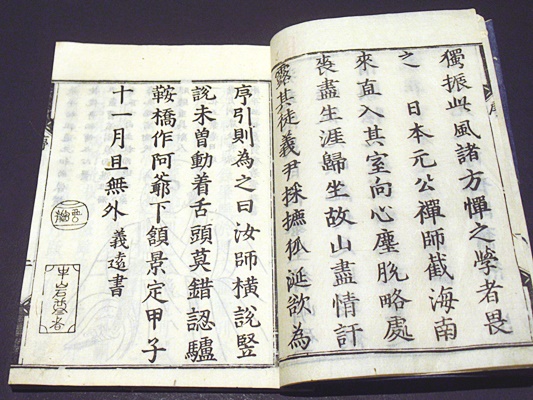 獨振此風諸方憚之學者畏
之 日本元公禪師截海南
來直入其室向心塵脫略處
喪盡生涯歸坐故山盡情訐
露其徒義尹採摭狐涎欲為
序引則為之曰汝師橫說豎
說未曾動着舌頭莫錯認驢
鞍橋作阿爺下頷景定甲子
十一月旦無外 義遠書